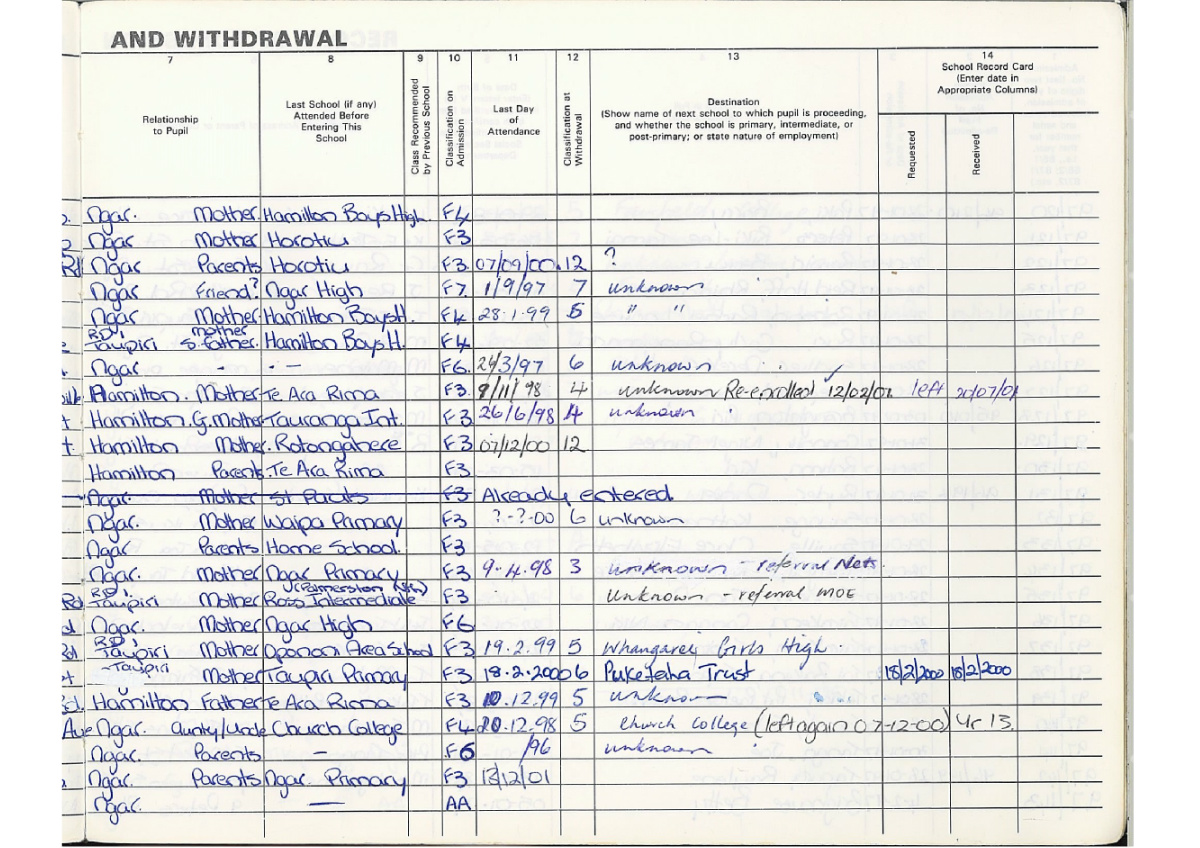 AND WITHDRAWAL
7 8 9 10 11 12 13 14
Relationship to Pupil
Last School (if any) Attended Before Entering This School
Class Recommended by Previous School
Classification on Admission
Last Day of Attendance
Classification at Withdrawal
Destination
(Show name of next school to which pupil is proceeding, and whether the school is primary, intermediate, or post-primary; or state nature of employment)
School Record Card
(Enter date in Appropriate Columns)
Requested
Received
Ngar. Mother Hamilton Boys High. F4
Ngar Mother Horotiu F3
Rd Ngar Parents Horotiu F3 07/09/00. 12 ?
Ngar Friend? Ngar High F7. 1/9/97 7 unknown
Ngar Mother Hamilton Boys H. F4 28.1.99 5 " "
RD1 Taupiri mother S.Father. Hamilton Boys H. F4
Ngar - - - F6. 24/3/97 6 unknown
Hamilton. Mother Te Ara Rima F3. 9/11/98 4 unknown Re-enrolled 12/02/01 left 20/07/01
t Hamilton. G.Mother Tauranga Int. F3 26/6/98 4 unknown
t. Hamilton Mother. Rotongahere F3 07/12/00 12
Hamilton Parents. Te Ara Rima F3
Ngar. Mother St Pauls F3 Already entered
Ngar. Mother Waipa Primary F3 ?-?-00 6 unknown
Ngar Parents Home School. F3
Ngar. Mother Ngar Primary F3 9.4.98 3 unknown - referral Nets
Rd RD1 Taupiri Mother Ross Intermediate (Palmerston Nth) F3 Unknown - referral MOE
Ngar. Mother Ngar High F6
Rd RD1 Taupiri Mother Opononi Area School F3 19.2.99 5 Whangarei Girls High.
Taupiri Mother Taupiri Primary F3 18.2.2000 6 Puketaha Trust 18/2/2000 18/2/2000
Hamilton Father Te Ara Rima F3 10.12.99 5 unknown
Ave Ngar. Aunty/Uncle Church College F4 20.12.98 5 Church College (left again 07-12-00) Yr 13.
Ngar. Parents - F6 /96 unknown
Ngar. Parents Ngar. Primary F3 13/12/01
Ngar. — AA